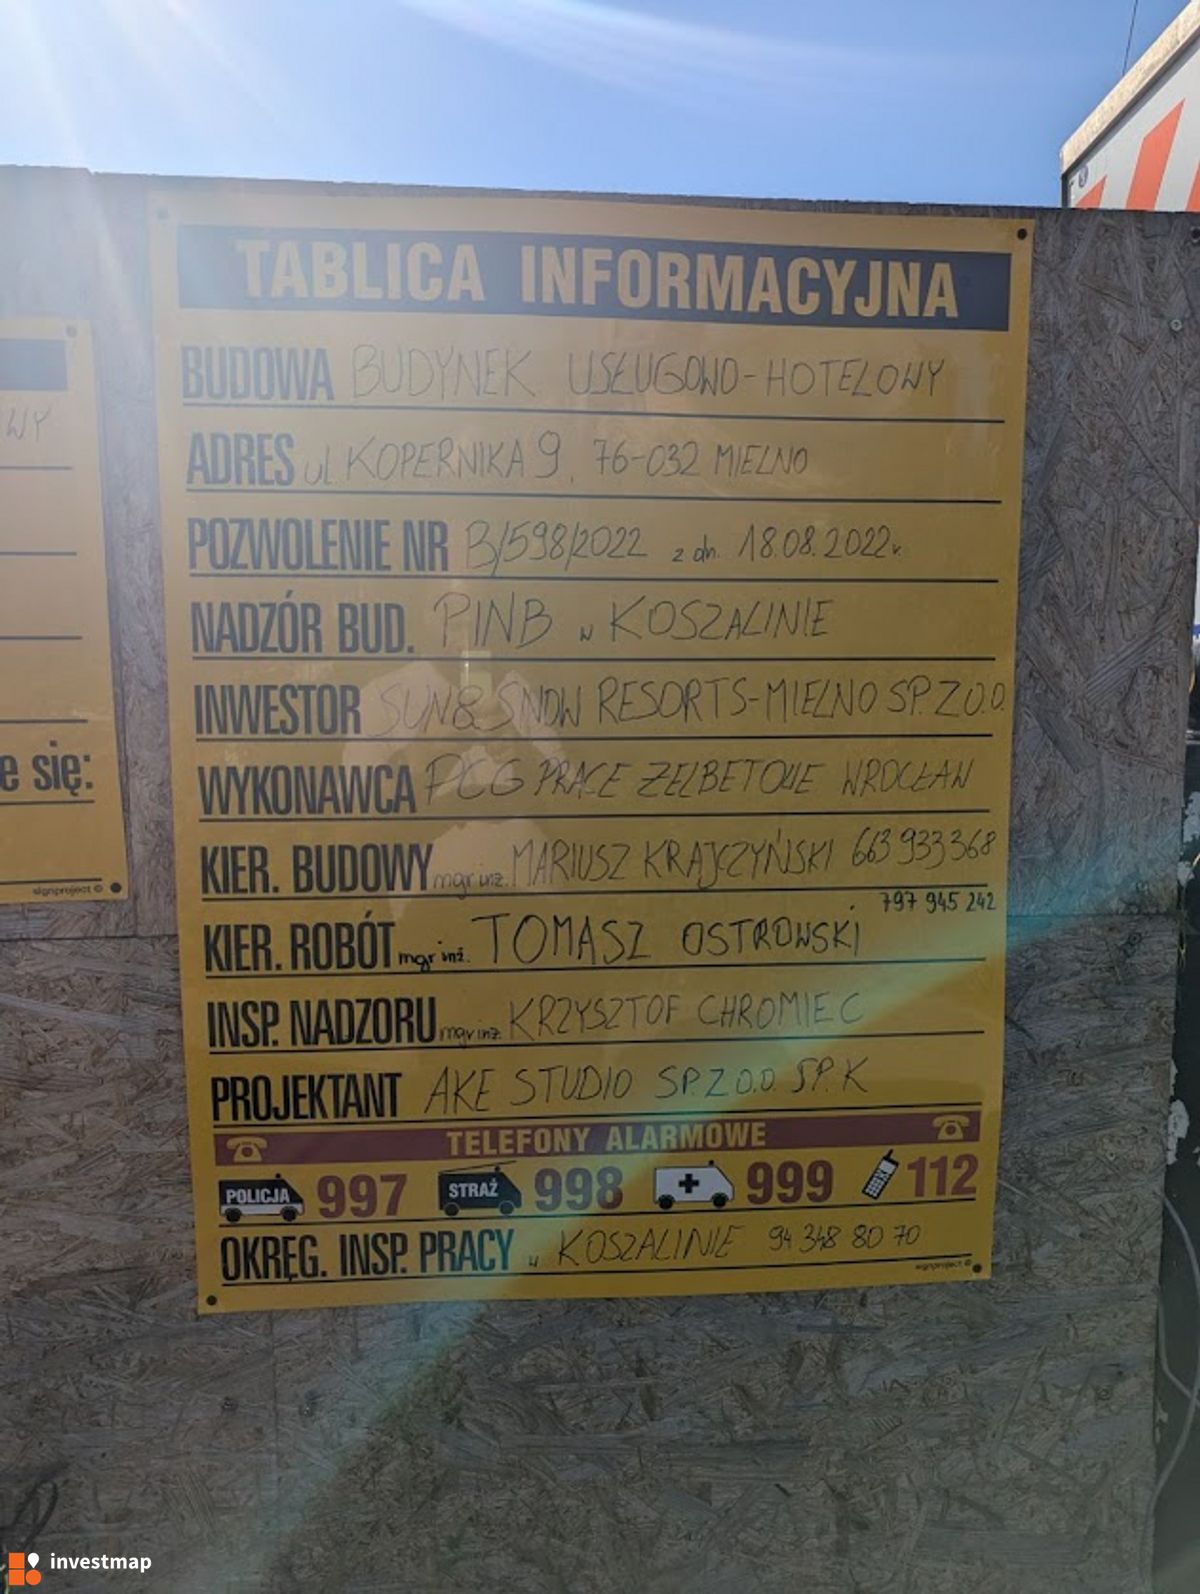 TABLICA INFORMACYJNA
BUDOWA BUDYNEK USŁUGOWO-HOTELOWY
ADRES ul. KOPERNIKA 9, 76-032 MIELNO
POZWOLENIE NR B/598/2022 z dn. 18.08.2022r.
NADZÓR BUD. PINB w KOSZALINIE
INWESTOR SUN&SNOW RESORTS-MIELNO SP. Z O.O.
WYKONAWCA PCG PRACE ŻELBETOWE WROCŁAW
KIER. BUDOWY mgr inż. MARIUSZ KRAJCZYŃSKI 663 933 368
797 945 242
KIER. ROBÓT mgr inż. TOMASZ OSTROWSKI
INSP. NADZORU mgr inż. KRZYSZTOF CHROMIEC
PROJEKTANT AKE STUDIO SP. Z O.O. SP. K
TELEFONY ALARMOWE
POLICJA 997 STRAŻ 998 999 112
OKRĘG. INSP. PRACY w KOSZALINIE 94 348 80 70
signproject ©
WY
e się:
signproject ©
investmap